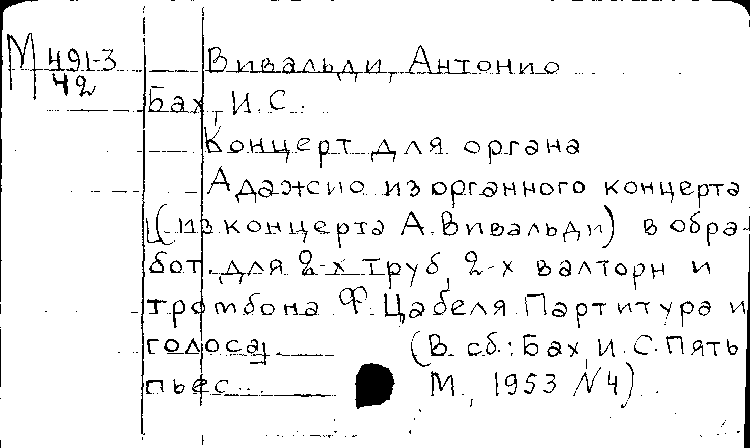 М 491-3 Вивальди, Антонио
42
Бах, И. С.
Концерт для органа
Адажио из органного концерта
(из концерта А. Вивальди) в обра-
бот. для 2-х труб, 2-х валторн и
тромбона Ф. Цабеля. Партитура и
голоса] (В сб.: Бах, И. С. Пять
пьес... М., 1953 №4)